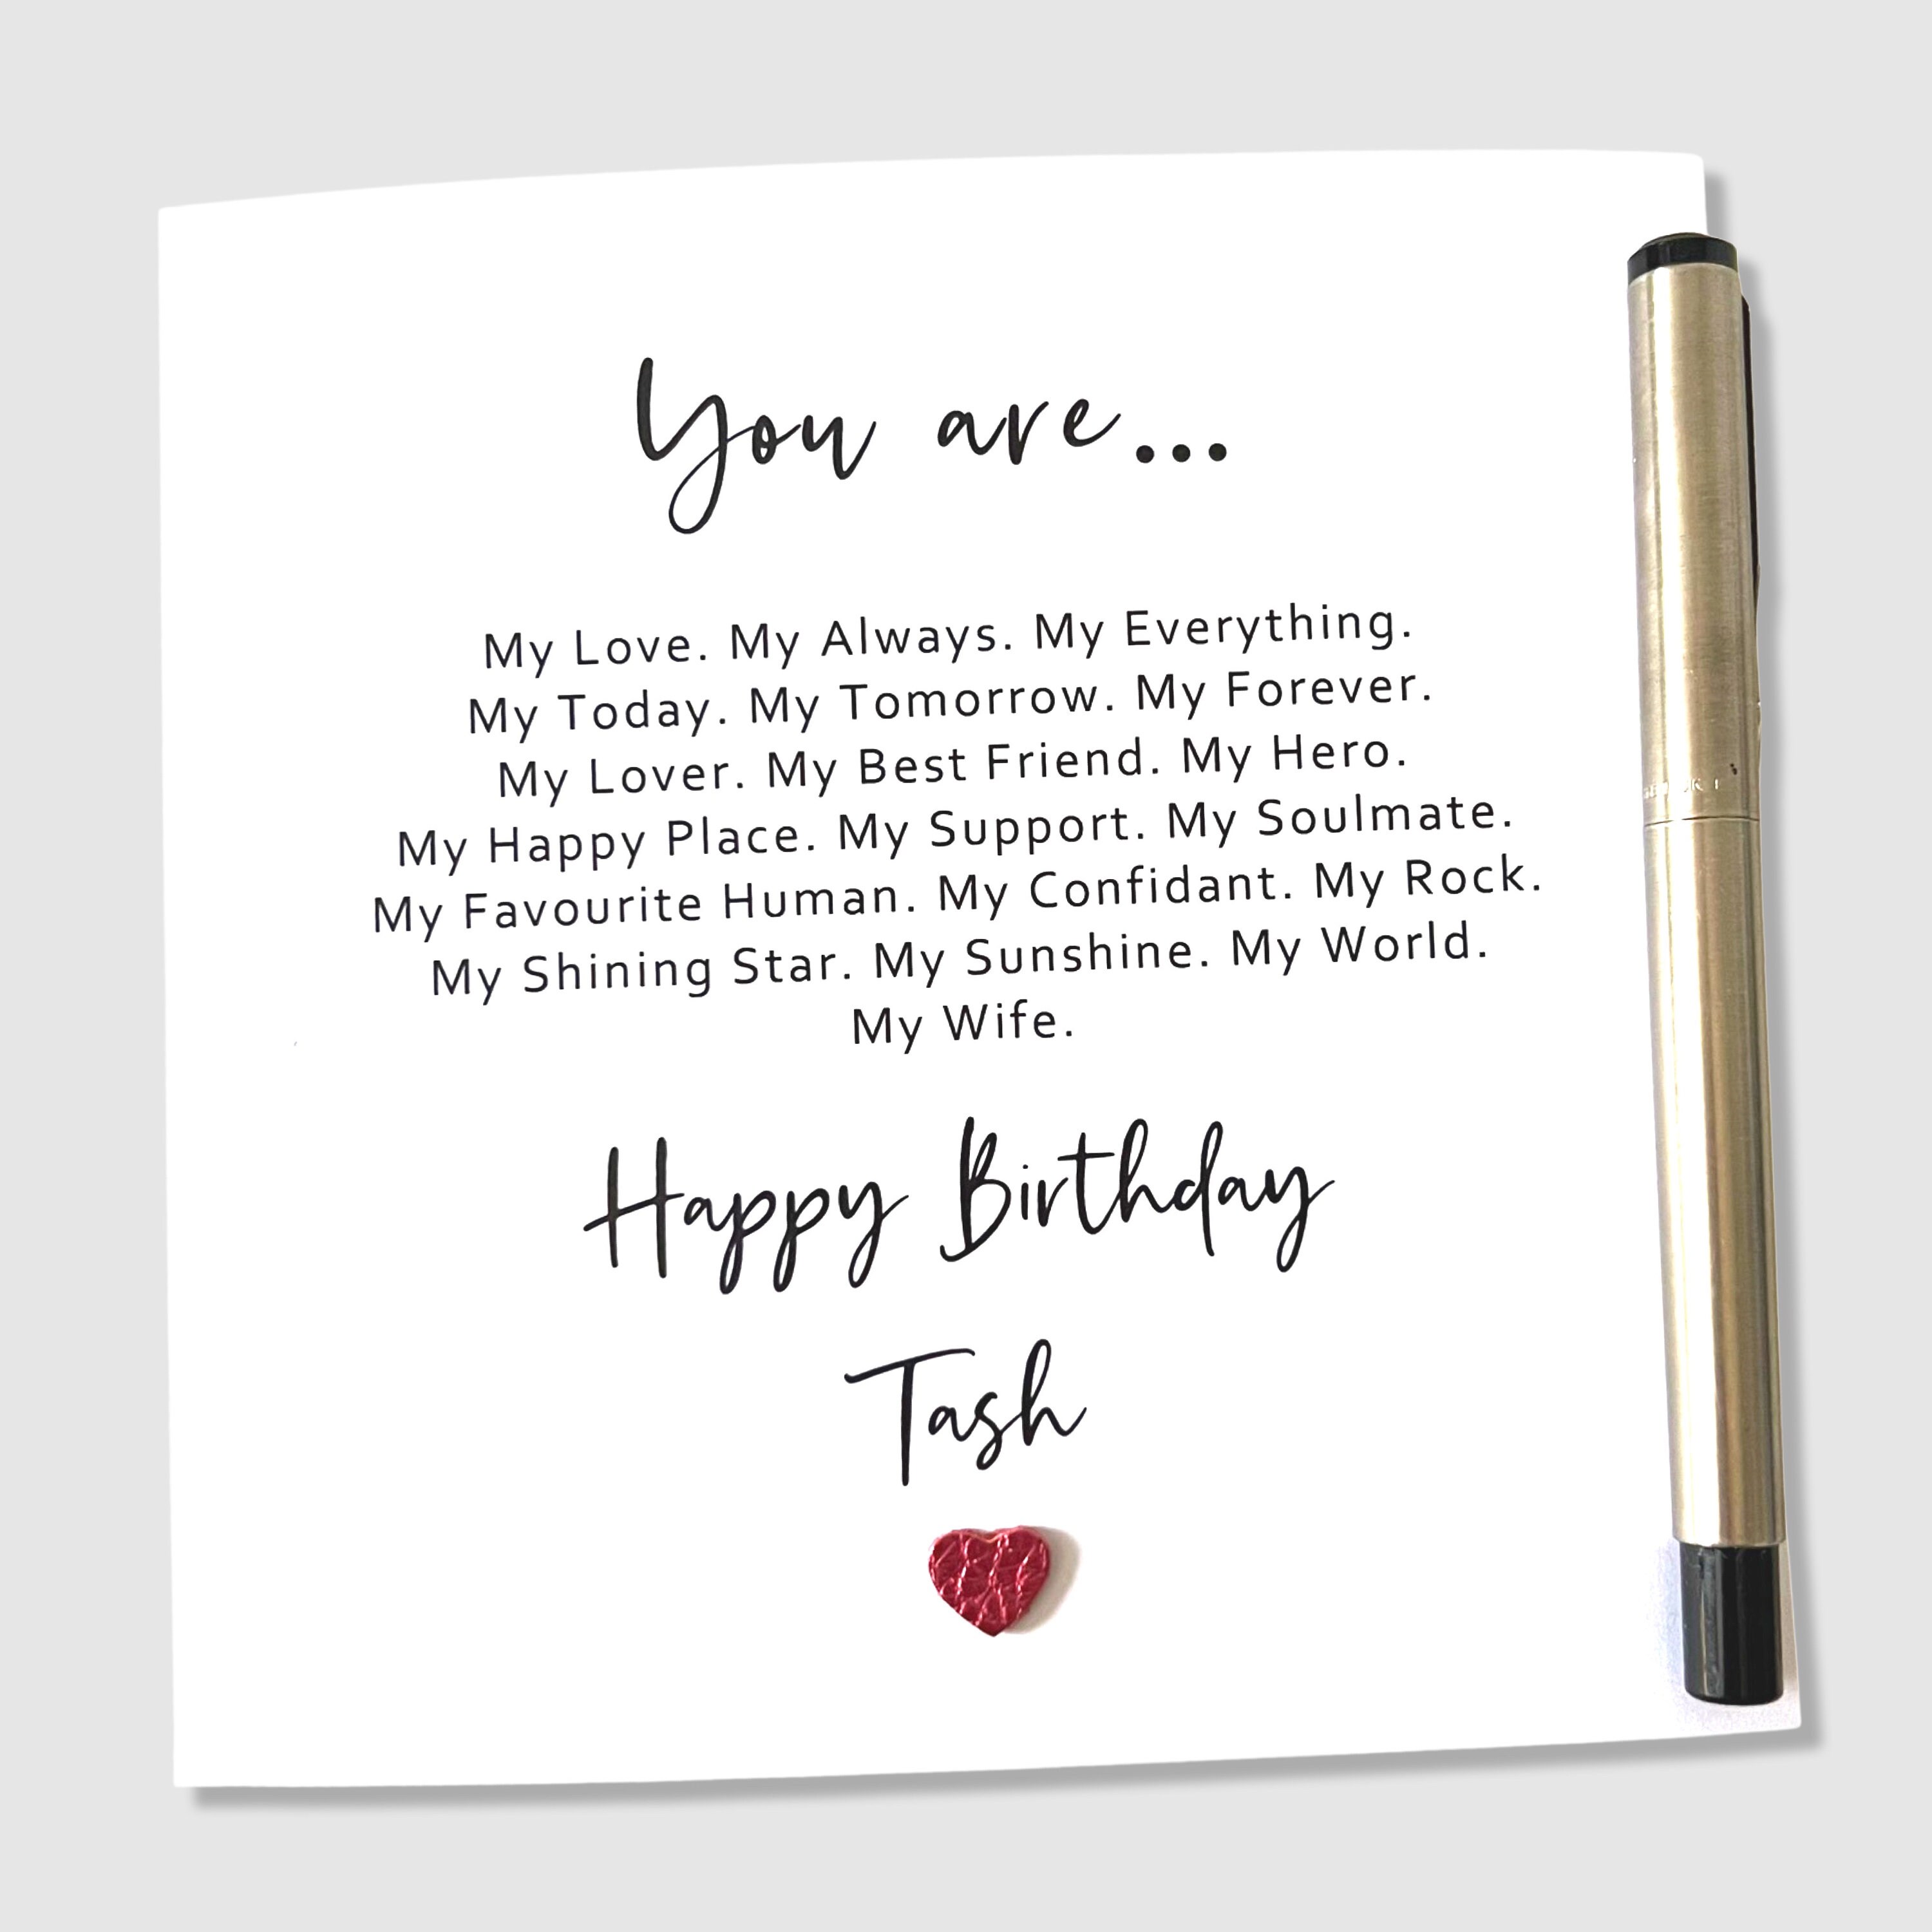 You are...
My Love. My Always. My Everything.
My Today. My Tomorrow. My Forever.
My Lover. My Best Friend. My Hero.
My Happy Place. My Support. My Soulmate.
My Favourite Human. My Confidant. My Rock.
My Shining Star. My Sunshine. My World.
My Wife.
Happy Birthday
Tash